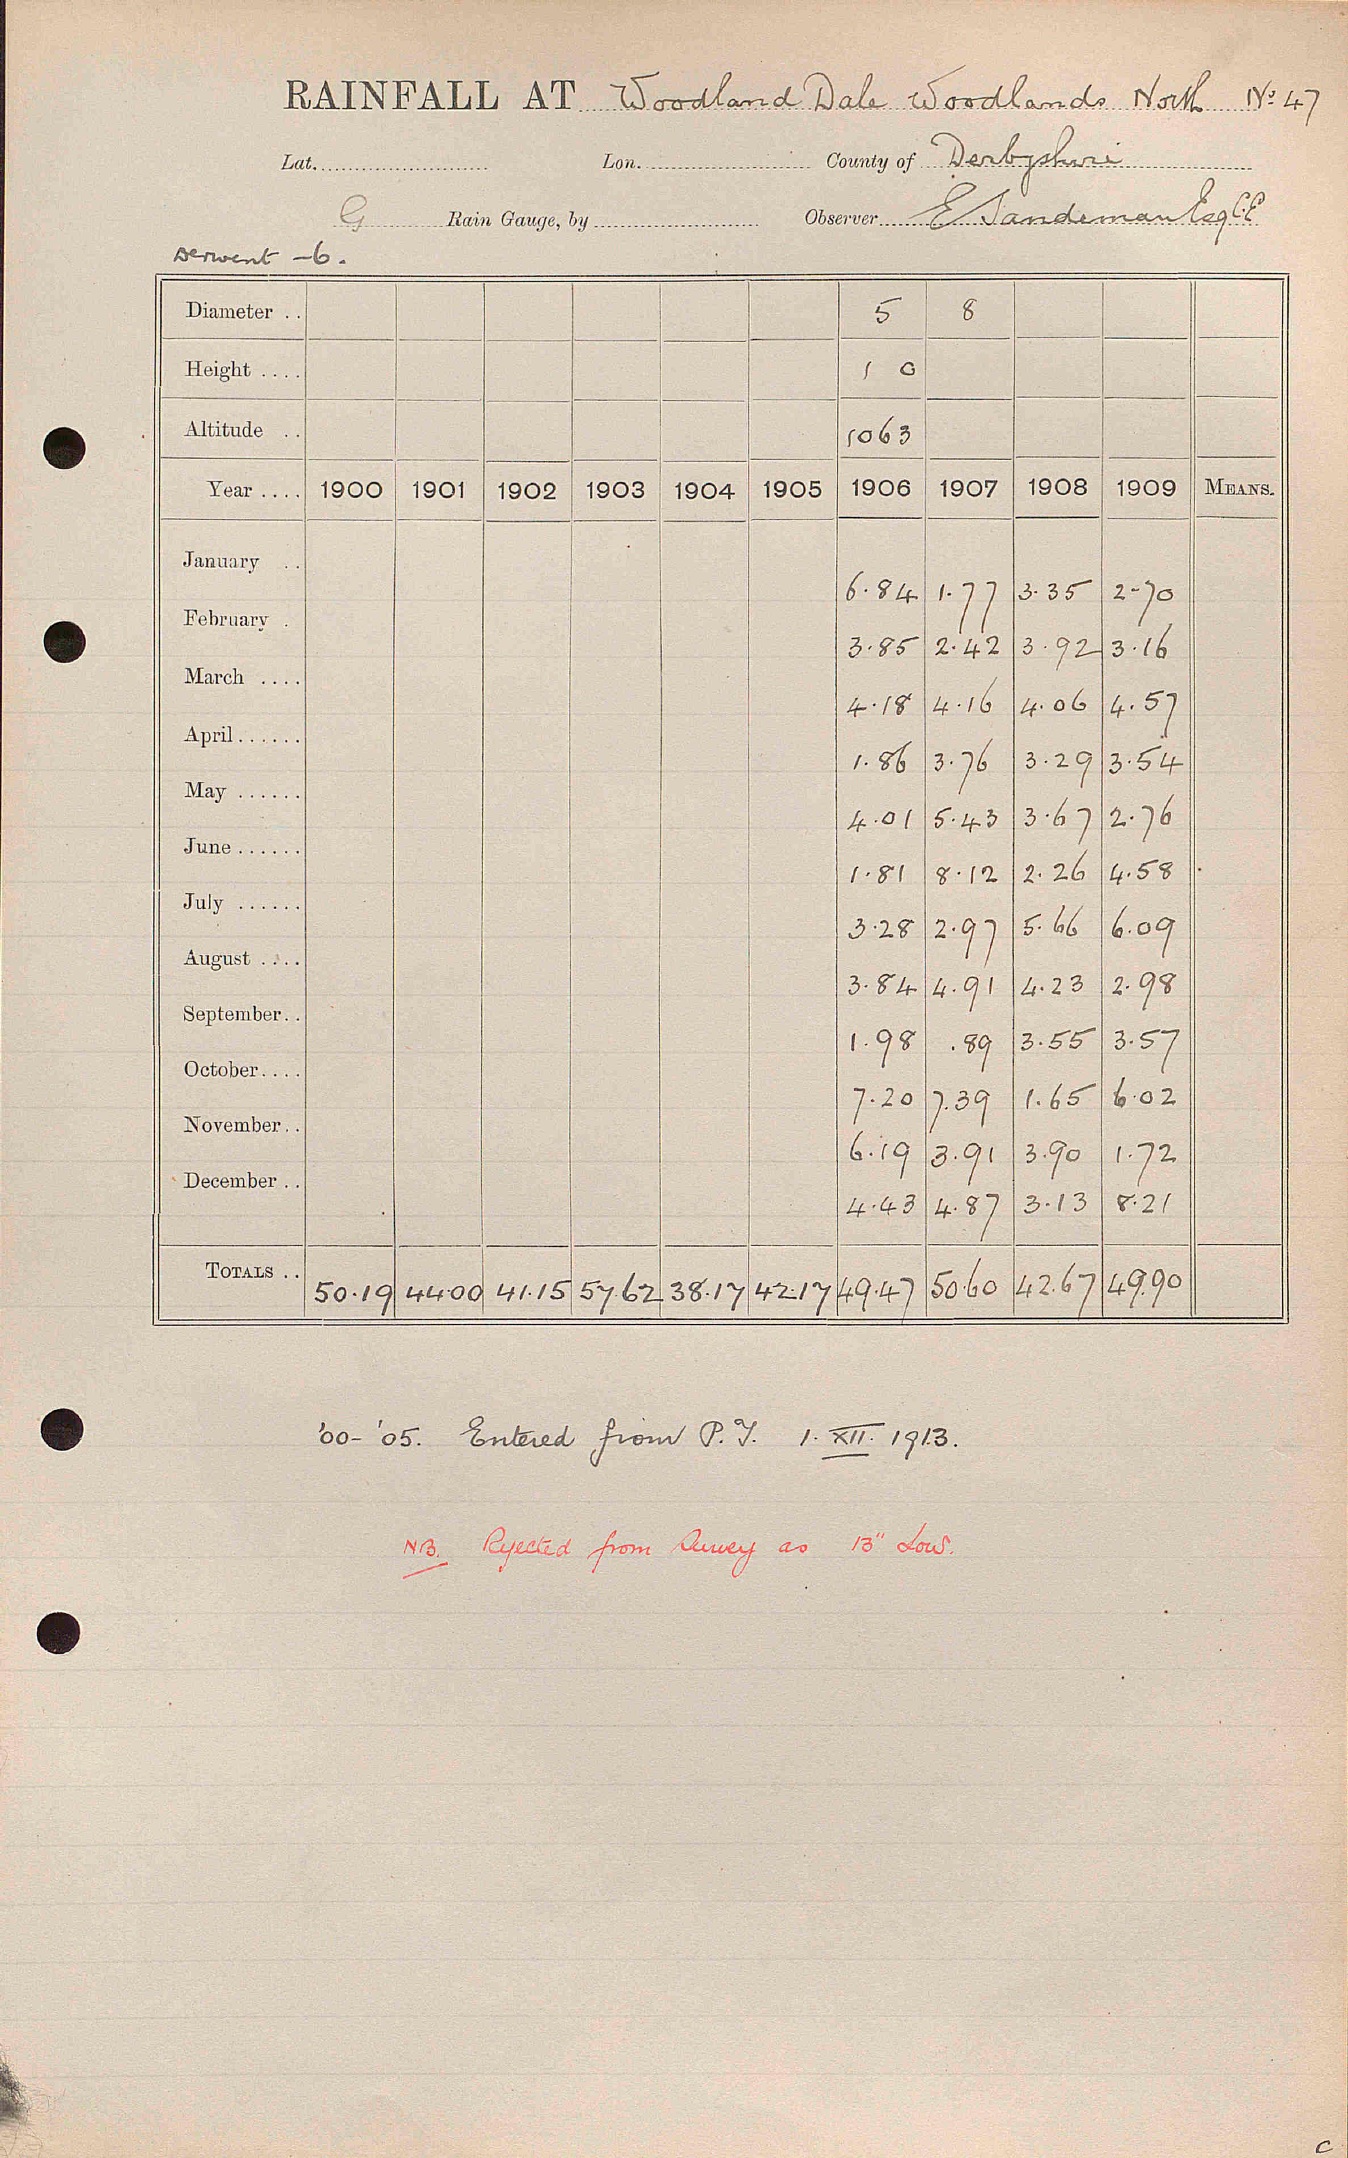 RAINFALL AT Woodland Dale Woodlands North No 47
Lat. Lon. County of Derbyshire
G Rain Gauge, by Observer E Sandeman Esq C.E
Derwent - 6.
Diameter .. 5 8
Height .... 1 0
Altitude .. 1063
Year .... 1900 1901 1902 1903 1904 1905 1906 1907 1908 1909 MEANS.
January .. 6.84 1.77 3.35 2.70
February . 3.85 2.42 3.92 3.16
March .... 4.18 4.16 4.06 4.57
April ...... 1.86 3.76 3.29 3.54
May ...... 4.01 5.43 3.67 2.76
June ...... 1.81 8.12 2.26 4.58
July ...... 3.28 2.97 5.66 6.09
August .... 3.84 4.91 4.23 2.98
September .. 1.98 .89 3.55 3.57
October .... 7.20 7.39 1.65 6.02
November .. 6.19 3.91 3.90 1.72
December .. 4.43 4.87 3.13 8.21
TOTALS .. 50.19 44.00 41.15 57.62 38.17 42.17 49.47 50.60 42.67 49.90
'00-'05. Entered from P.Y. 1. XII. 1913.
NB. Rejected from Survey as 13" Low.
C